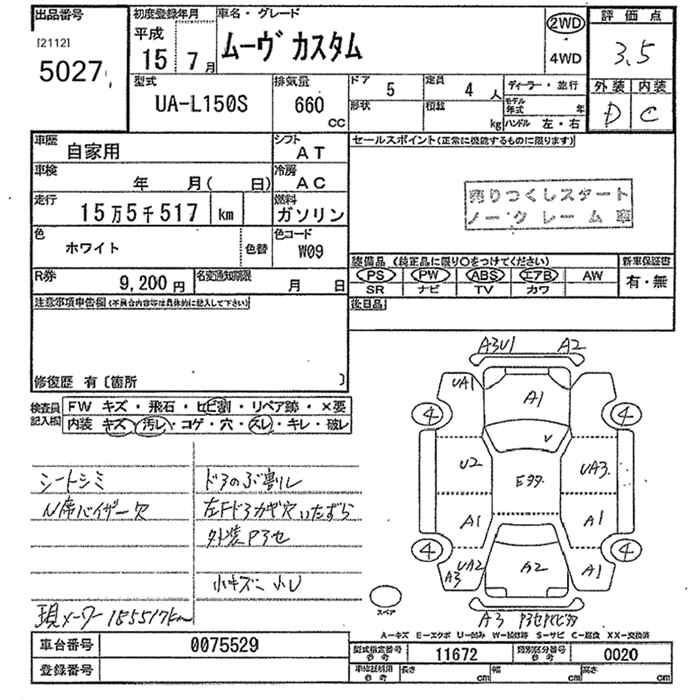 出品番号 初度登録年月 車名・グレード 評価点
[2112] 平成 ムーヴ カスタム 2WD 3.5
5027 15年 7月 4WD 外装 内装
型式 排気量 ドア 5 定員 4人 ディーラー・並行 D C
UA-L150S 660cc 形状 積載 kg モデル年式 年
ハンドル 左・右
車歴 自家用 シフト AT セールスポイント(正常に機能するものに限ります)
車検 年 月( 日) 冷房 AC
売りつくしスタート
ノークレーム車
走行 15万5千517 km 燃料 ガソリン
色 ホワイト 色替 色コード W09
装備品 (純正品に限り○をつけてください) 新車保証書
R券 9,200円 名変通知期限 月 日 PS PW ABS エアB AW 有・無
SR ナビ TV カワ
注意事項申告欄(不具合内容等は具体的に記入して下さい) 後日品
修復歴 有〔箇所 〕
検査員記入欄 FW キズ・飛石・ヒビ割・リペア跡・×要
内装 キズ・汚レ・コゲ・穴・スレ・キレ・破レ
A3U1 A2
UA1 A1
4 4
V
U2 E99 UA3
A1 A1
4 4
UA2 A3 A2 A1
スペア
A3
シートシミ ドアのぶ割レ
N席バイザー欠 左Fドアカギ穴いたずら
外装P3セ
小キズ 小U
現メーター155517km
A−キズ E−エクボ U−凹み W−補修跡 S−サビ C−腐食 XX−交換済
車台番号 0075529 型式指定番号 参考 11672 類別区分番号 参考 0020
登録番号 車体諸元用 参考 長さ cm 幅 cm 高さ cm